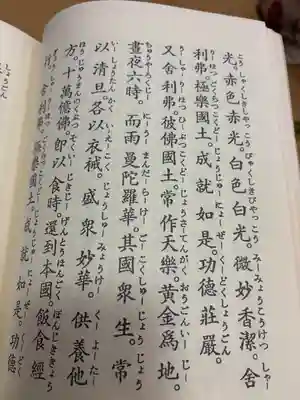 光。赤色赤光。白色白光。微妙香潔。舍
利弗。極樂國土。成就如是。功德莊嚴。
又舍利弗。彼佛國土。常作天樂。黃金爲地。
晝夜六時。而雨曼陀羅華。其國衆生。常
以清旦。各以衣裓。盛衆妙華。供養他
方。十萬億佛。即以食時。還到本國。飯食經
行。舍利弗。極樂國土。成就如是。功德